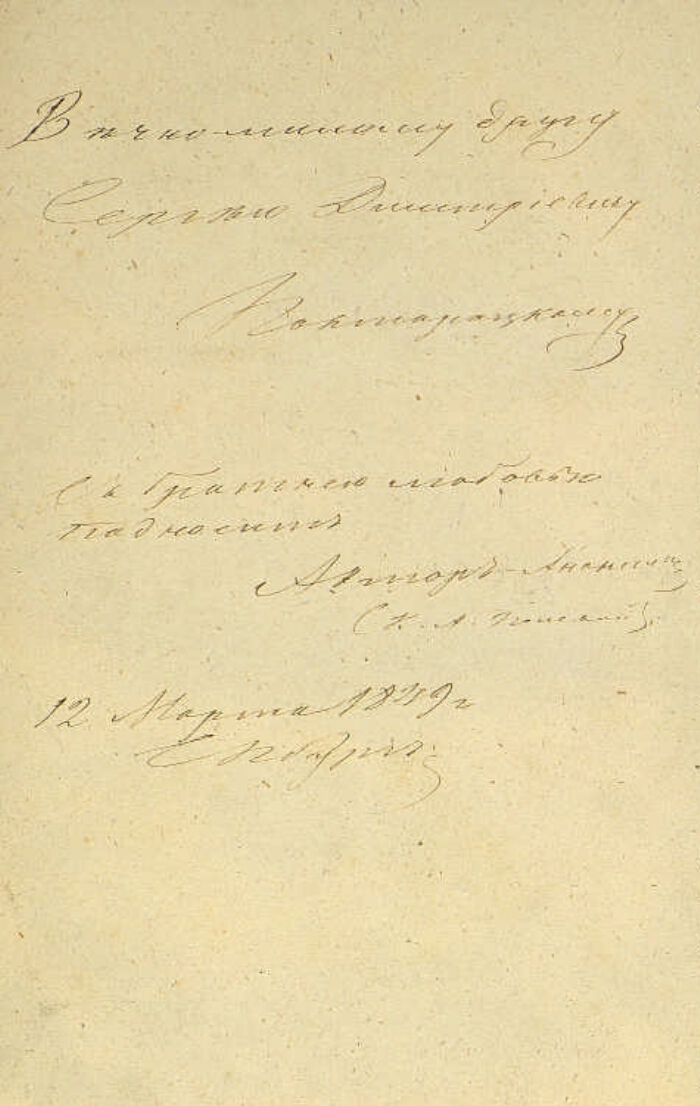 Вѣчно милому другу
Сергѣю Дмитріевичу
Полторацкому
Съ братнею любовью
подноситъ
Авторъ-Анонимъ
(К. А. Полевой).
12 Марта 1849 г
СПбургъ.